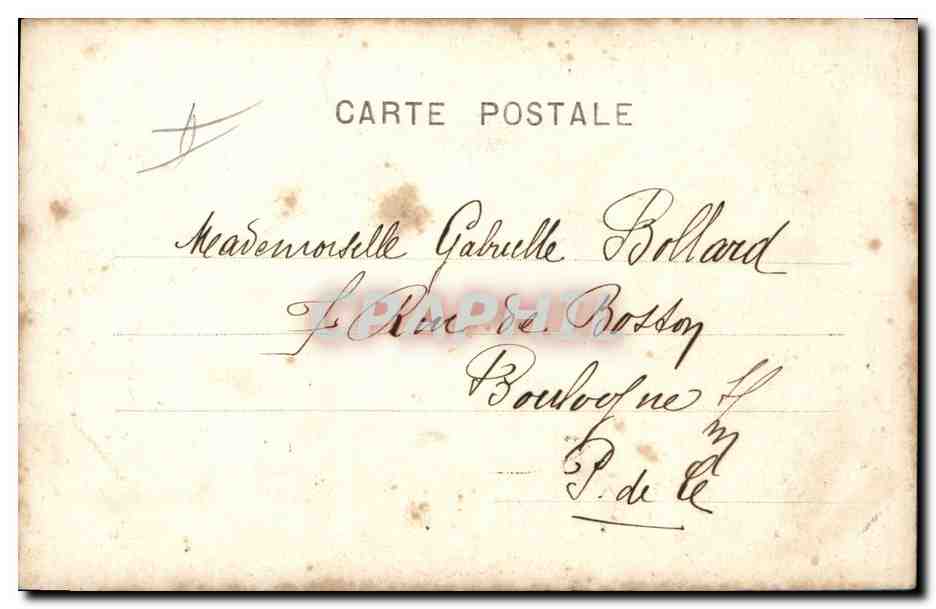 CARTE POSTALE
Mademoiselle Gabrielle Bollard
7 Rue de Boston
Boulogne s/
m
P. de C